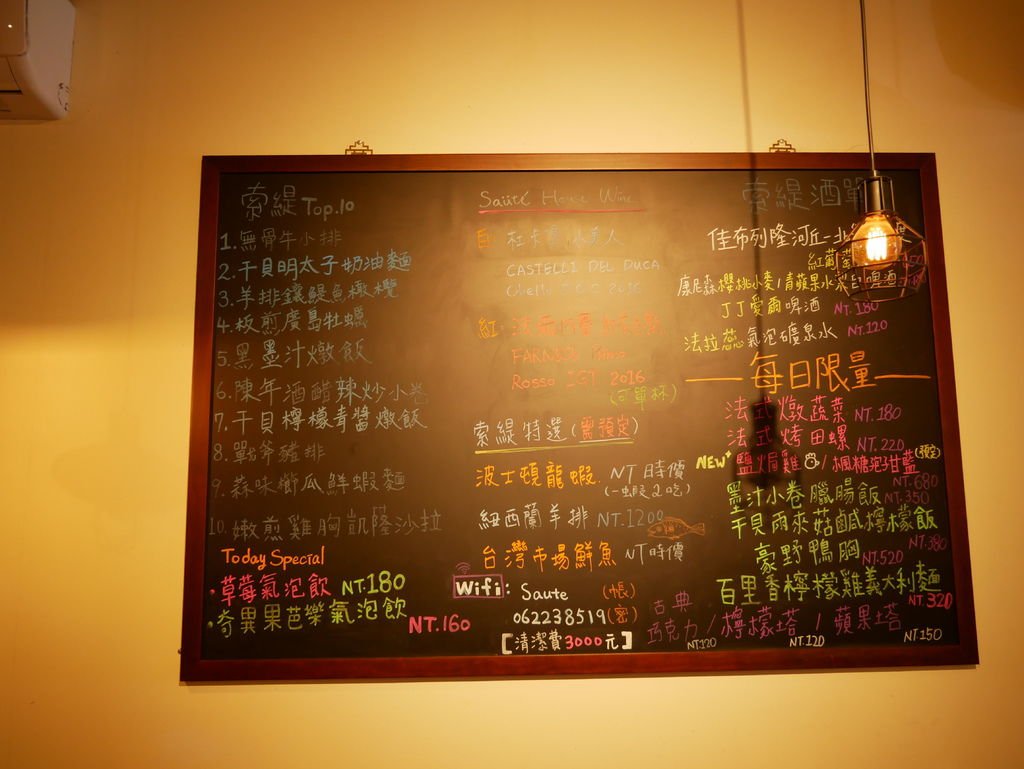 索緹 Top.10
1. 無骨牛小排
2. 干貝明太子奶油麵
3. 羊排鑲鯷魚橄欖
4. 板煎廣島牡蠣
5. 黑墨汁燉飯
6. 陳年酒醋辣炒小卷
7. 干貝檸檬青醬燉飯
8. 戰斧豬排
9. 蒜味櫛瓜鮮蝦麵
10. 嫩煎雞胸凱薩沙拉
Today Special
・草莓氣泡飲 NT.180
・奇異果芭樂氣泡飲
NT.160
Sauté House Wine
白: 杜卡
CASTELLI DEL DUCA
2016
紅:
FARNESE
Rosso IGT 2016
(可單杯)
索緹特選(需預定)
波士頓龍蝦. NT時價
(一蝦2吃)
紐西蘭羊排 NT.1200
台灣市場鮮魚 NT時價
Wifi: Saute (帳)
062238519(密)
【清潔費3000元】
索緹酒單
佳布列隆河丘-北
紅葡萄
康尼森櫻桃小麥/青蘋果水梨 啤酒
JJ愛爾啤酒 NT.180
法拉蕊氣泡礦泉水 NT.120
每日限量
法式燉蔬菜 NT.180
法式烤田螺 NT.220
NEW 鹽焗雞/楓糖孢子甘藍(預定)
NT.680
墨汁小卷臘腸飯 NT.350
干貝雨來菇鹹檸檬飯
NT.380
豪野鴨胸 NT.520
百里香檸檬雞義大利麵
NT.320
古典
巧克力/檸檬塔/蘋果塔
NT.120 NT.120 NT.150